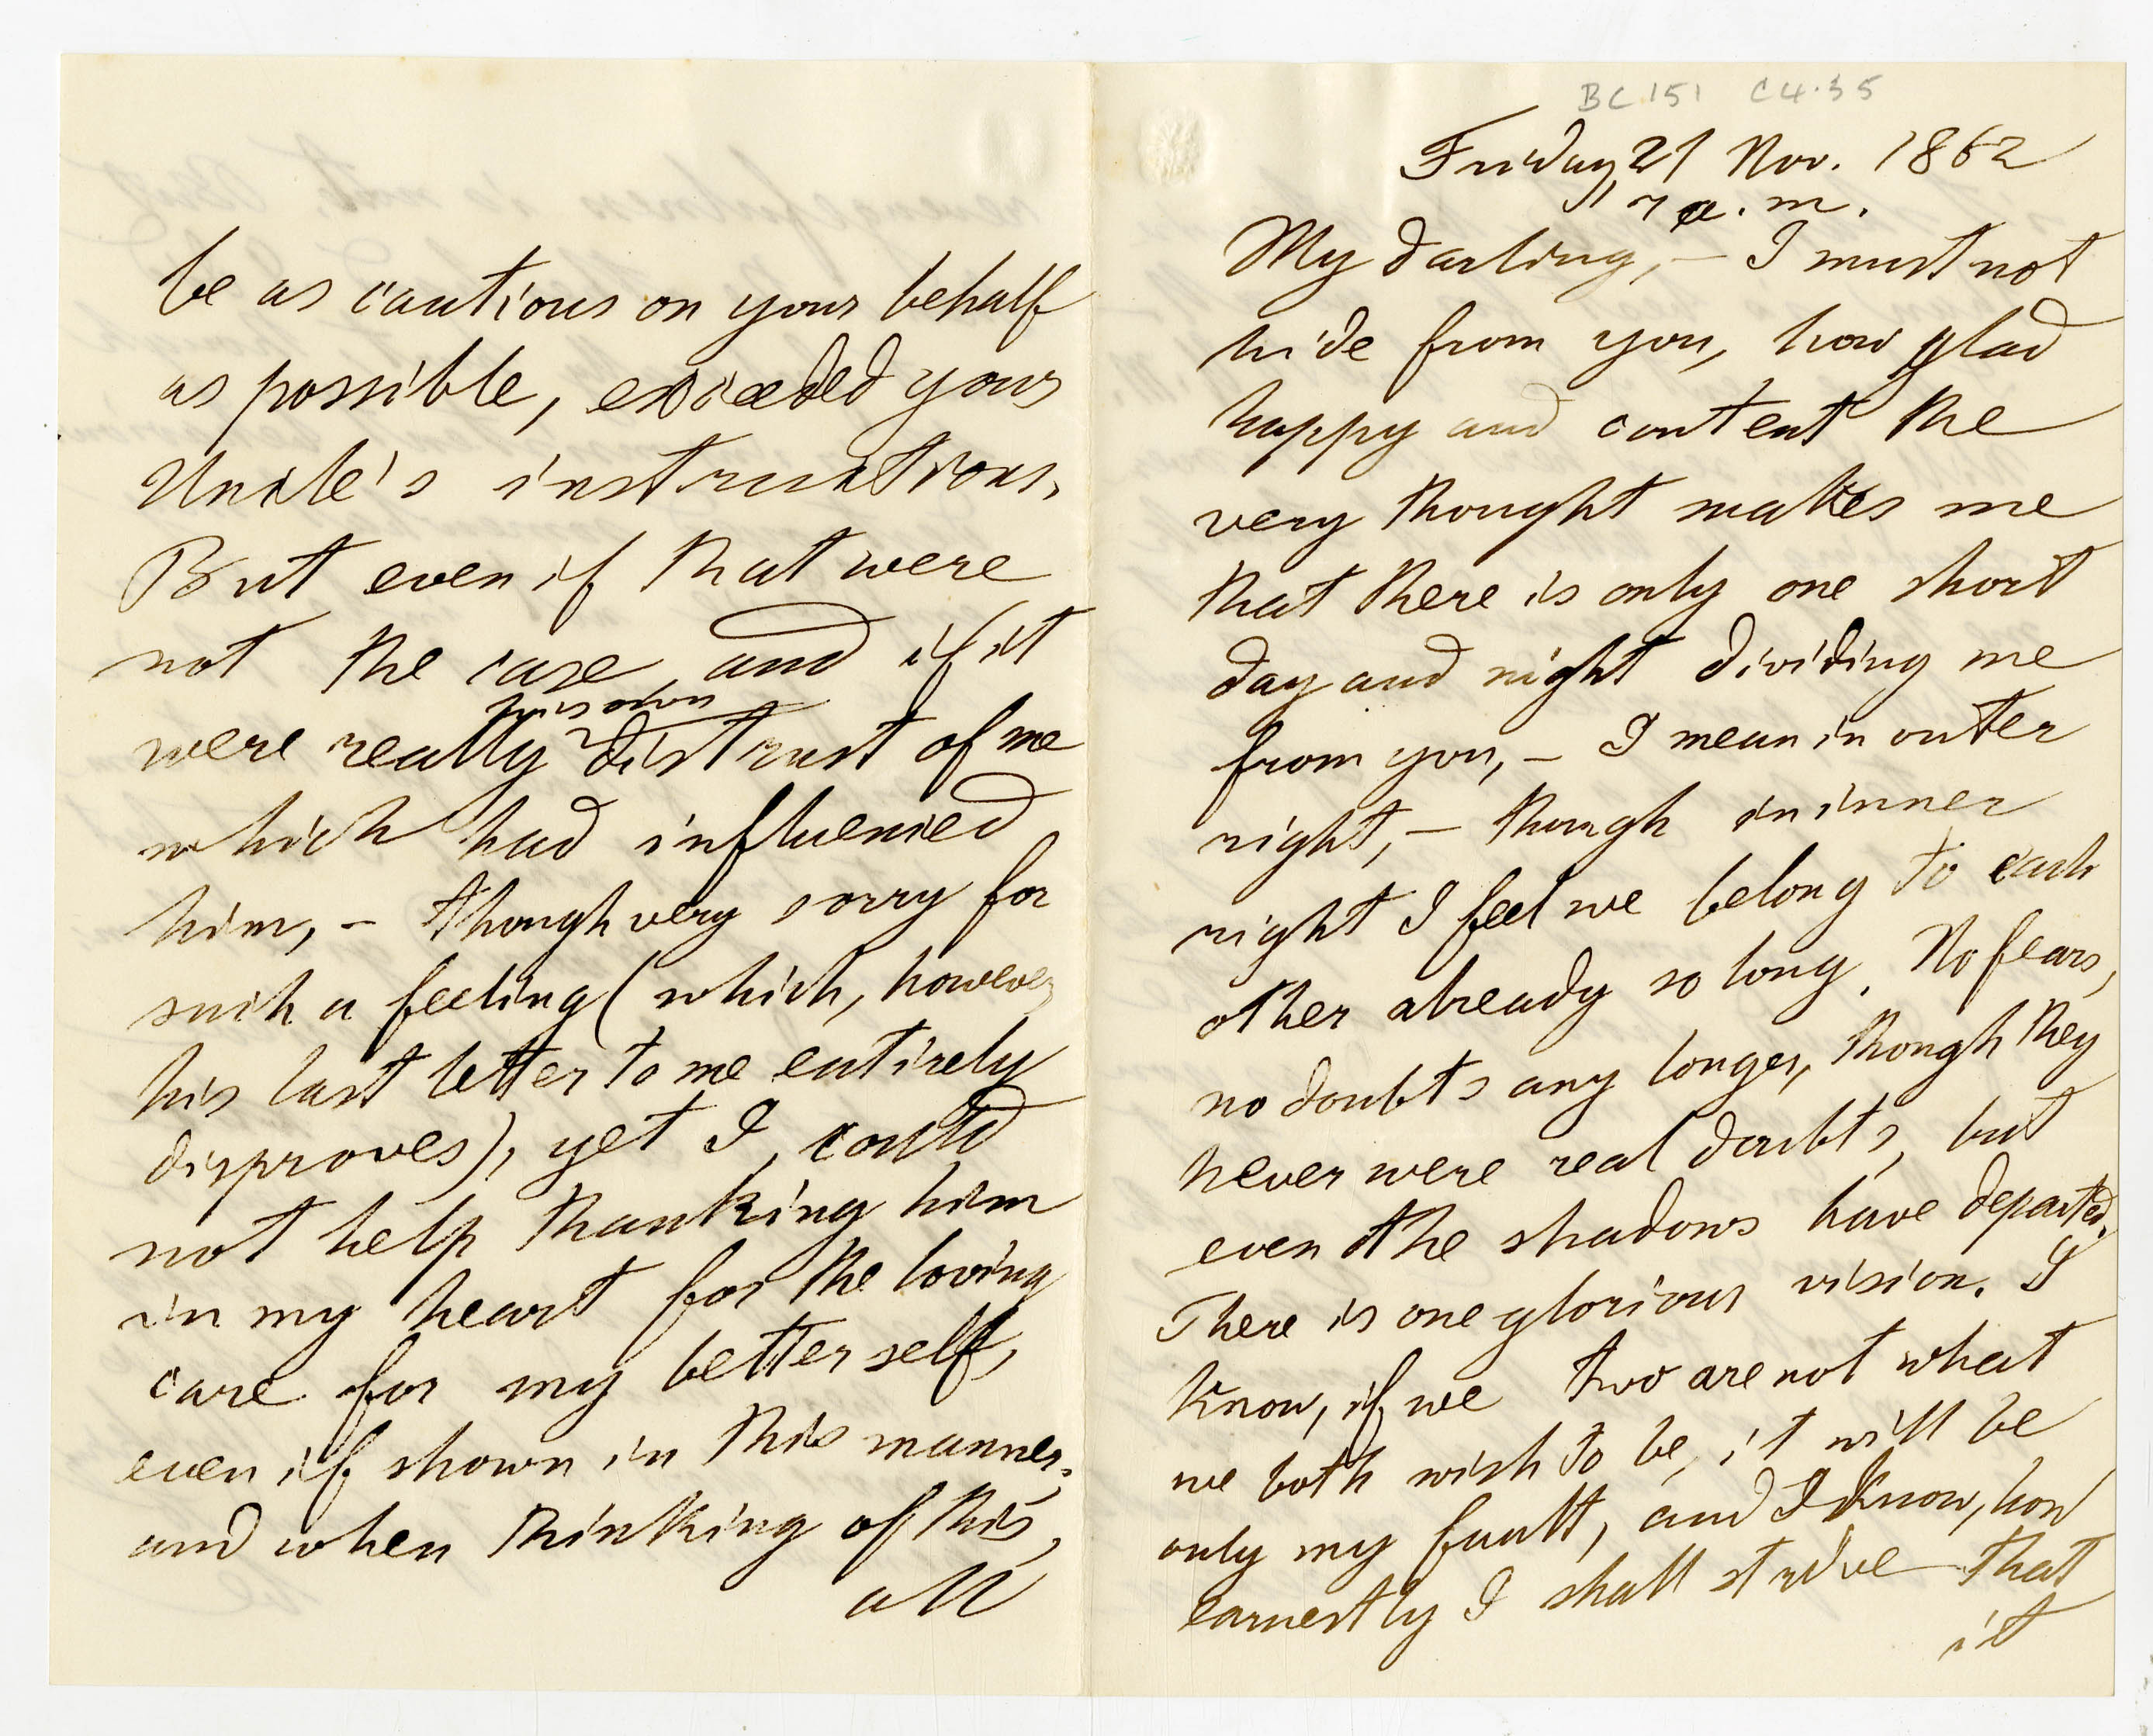 BC 151 C4.35
Friday, 21 Nov. 1862
7 a.m.
My darling, — I must not
hide from you, how glad
happy and content the
very thought makes me
that there is only one short
day and night dividing me
from you, — I mean in outer
right, — though in inner
right I feel we belong to each
other already so long. No fears,
no doubts any longer, though they
never were real doubts, but
even the shadows have departed.
There is one glorious vision. I
know, if we two are not what
we both wish to be, it will be
only my fault, and I know, how
earnestly I shall strive that
it
be as cautious on your behalf
as possible, exceeded your
Uncle's instructions.
But even if that were
not the case, and if it
his own
were really distrust of me
which had influenced
him, — though very sorry for
such a feeling (which, however
his last letter to me entirely
disproves), yet I could
not help thanking him
in my heart for the loving
care for my better self,
even if shown in this manner;
and when thinking of this,
all